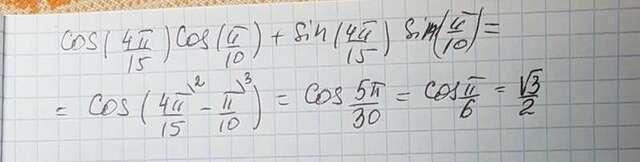 cos(4π/15)cos(π/10) + sin(4π/15) sin(π/10) =
= cos(4π/15² - π/10³) = cos 5π/30 = cos π/6 = √3/2